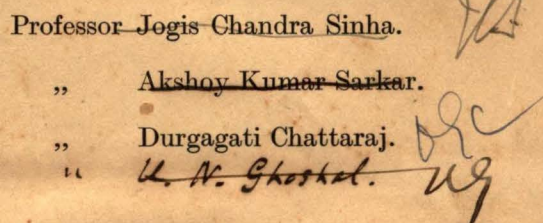 Professor Jogis Chandra Sinha.
„ Akshoy Kumar Sarkar.
„ Durgagati Chattaraj.
„ U. N. Ghoshal.